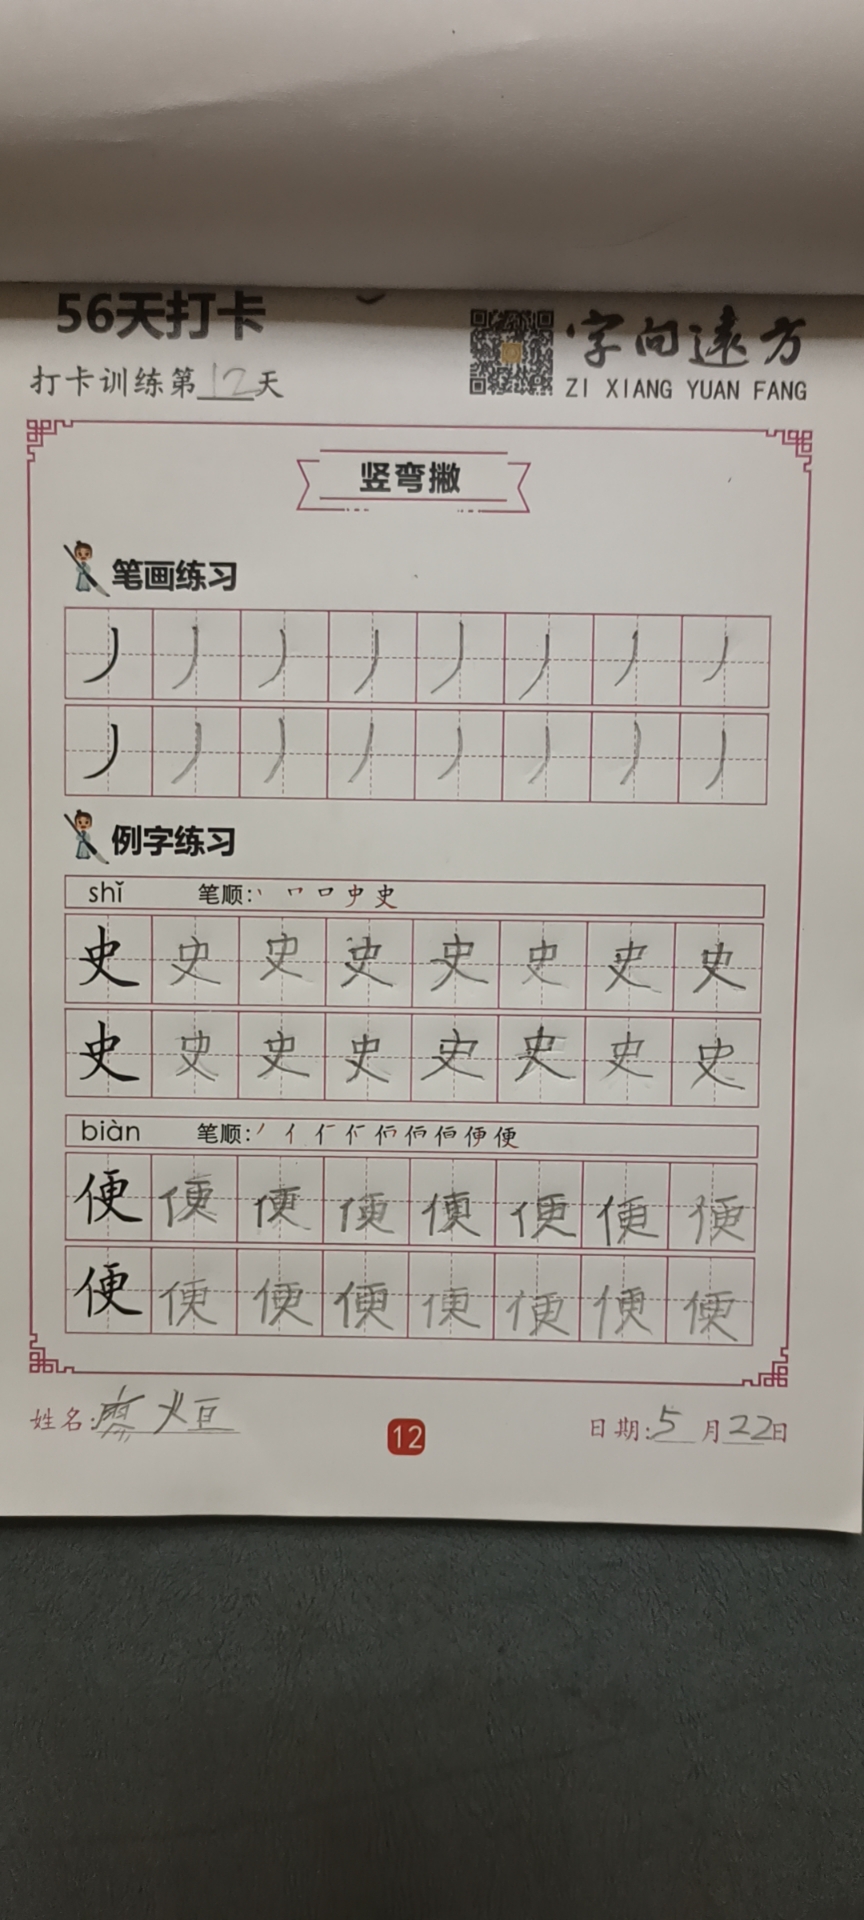 56天打卡
字向远方
打卡训练第12天
ZI XIANG YUAN FANG
竖弯撇
笔画练习
丿 丿 丿 丿 丿 丿 丿 丿
丿 丿 丿 丿 丿 丿 丿 丿
例字练习
shǐ 笔顺: 丶 口 口 史 史
史 史 史 史 史 史 史 史
史 史 史 史 史 史 史 史
biàn 笔顺: 丿 亻 便
便 便 便 便 便 便 便 便
便 便 便 便 便 便 便 便
姓名:廖烜
12
日期:5月22日